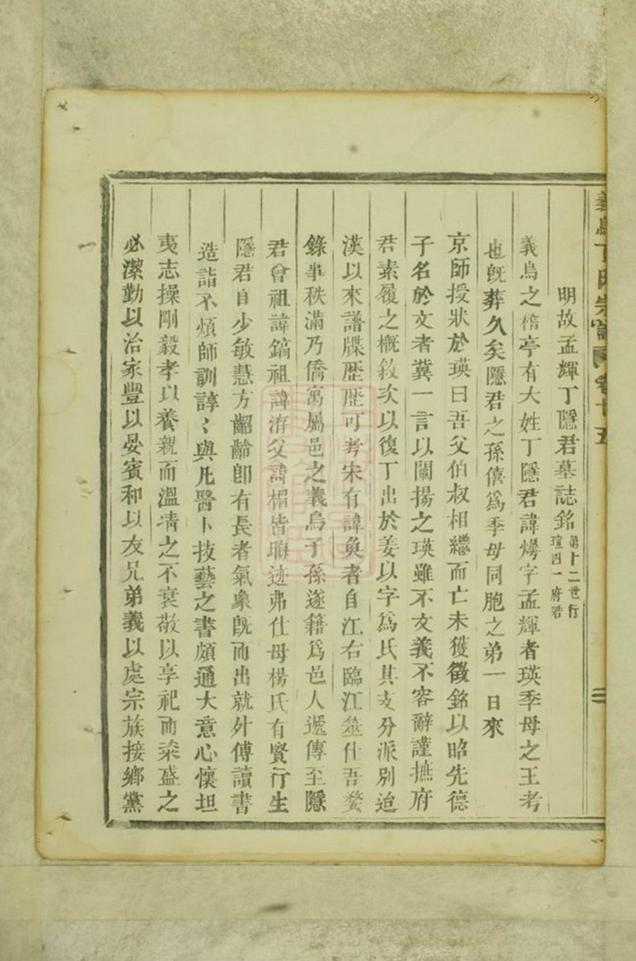 義烏丁氏宗譜 卷十五
明故孟輝丁隱君墓誌銘 第十二世行瓊四一府君
義烏之楂亭有大姓丁隱君諱燆字孟輝者瑛季母之王考
也既葬久矣隱君之孫僖爲季母同胞之弟一日來
京師授狀於瑛曰吾父伯叔相繼而亡未獲徵銘以昭先德
子名於文者冀一言以闡揚之瑛雖不文義不容辭謹摭府
君素履之概敘次以復丁出於姜以字爲氏其支分派別迨
漢以來譜牒歷歷可考宋有諱奐者自江右臨江筮仕吾婺
錄事秩滿乃僑寓屬邑之義烏子孫遂籍爲邑人遞傳至隱
君曾祖諱鎬祖諱洧父諱楣皆晦迹弗仕母楊氏有賢行生
隱君自少敏慧方齠齡卽有長者氣象旣而出就外傅讀書
造詣不煩師訓諄〻與凡醫卜技藝之書頗通大意心懷坦
夷志操剛毅孝以養親而溫凊之不衰敬以享祀而粢盛之
必潔勤以治家豐以晏賓和以友兄弟義以處宗族接鄉黨